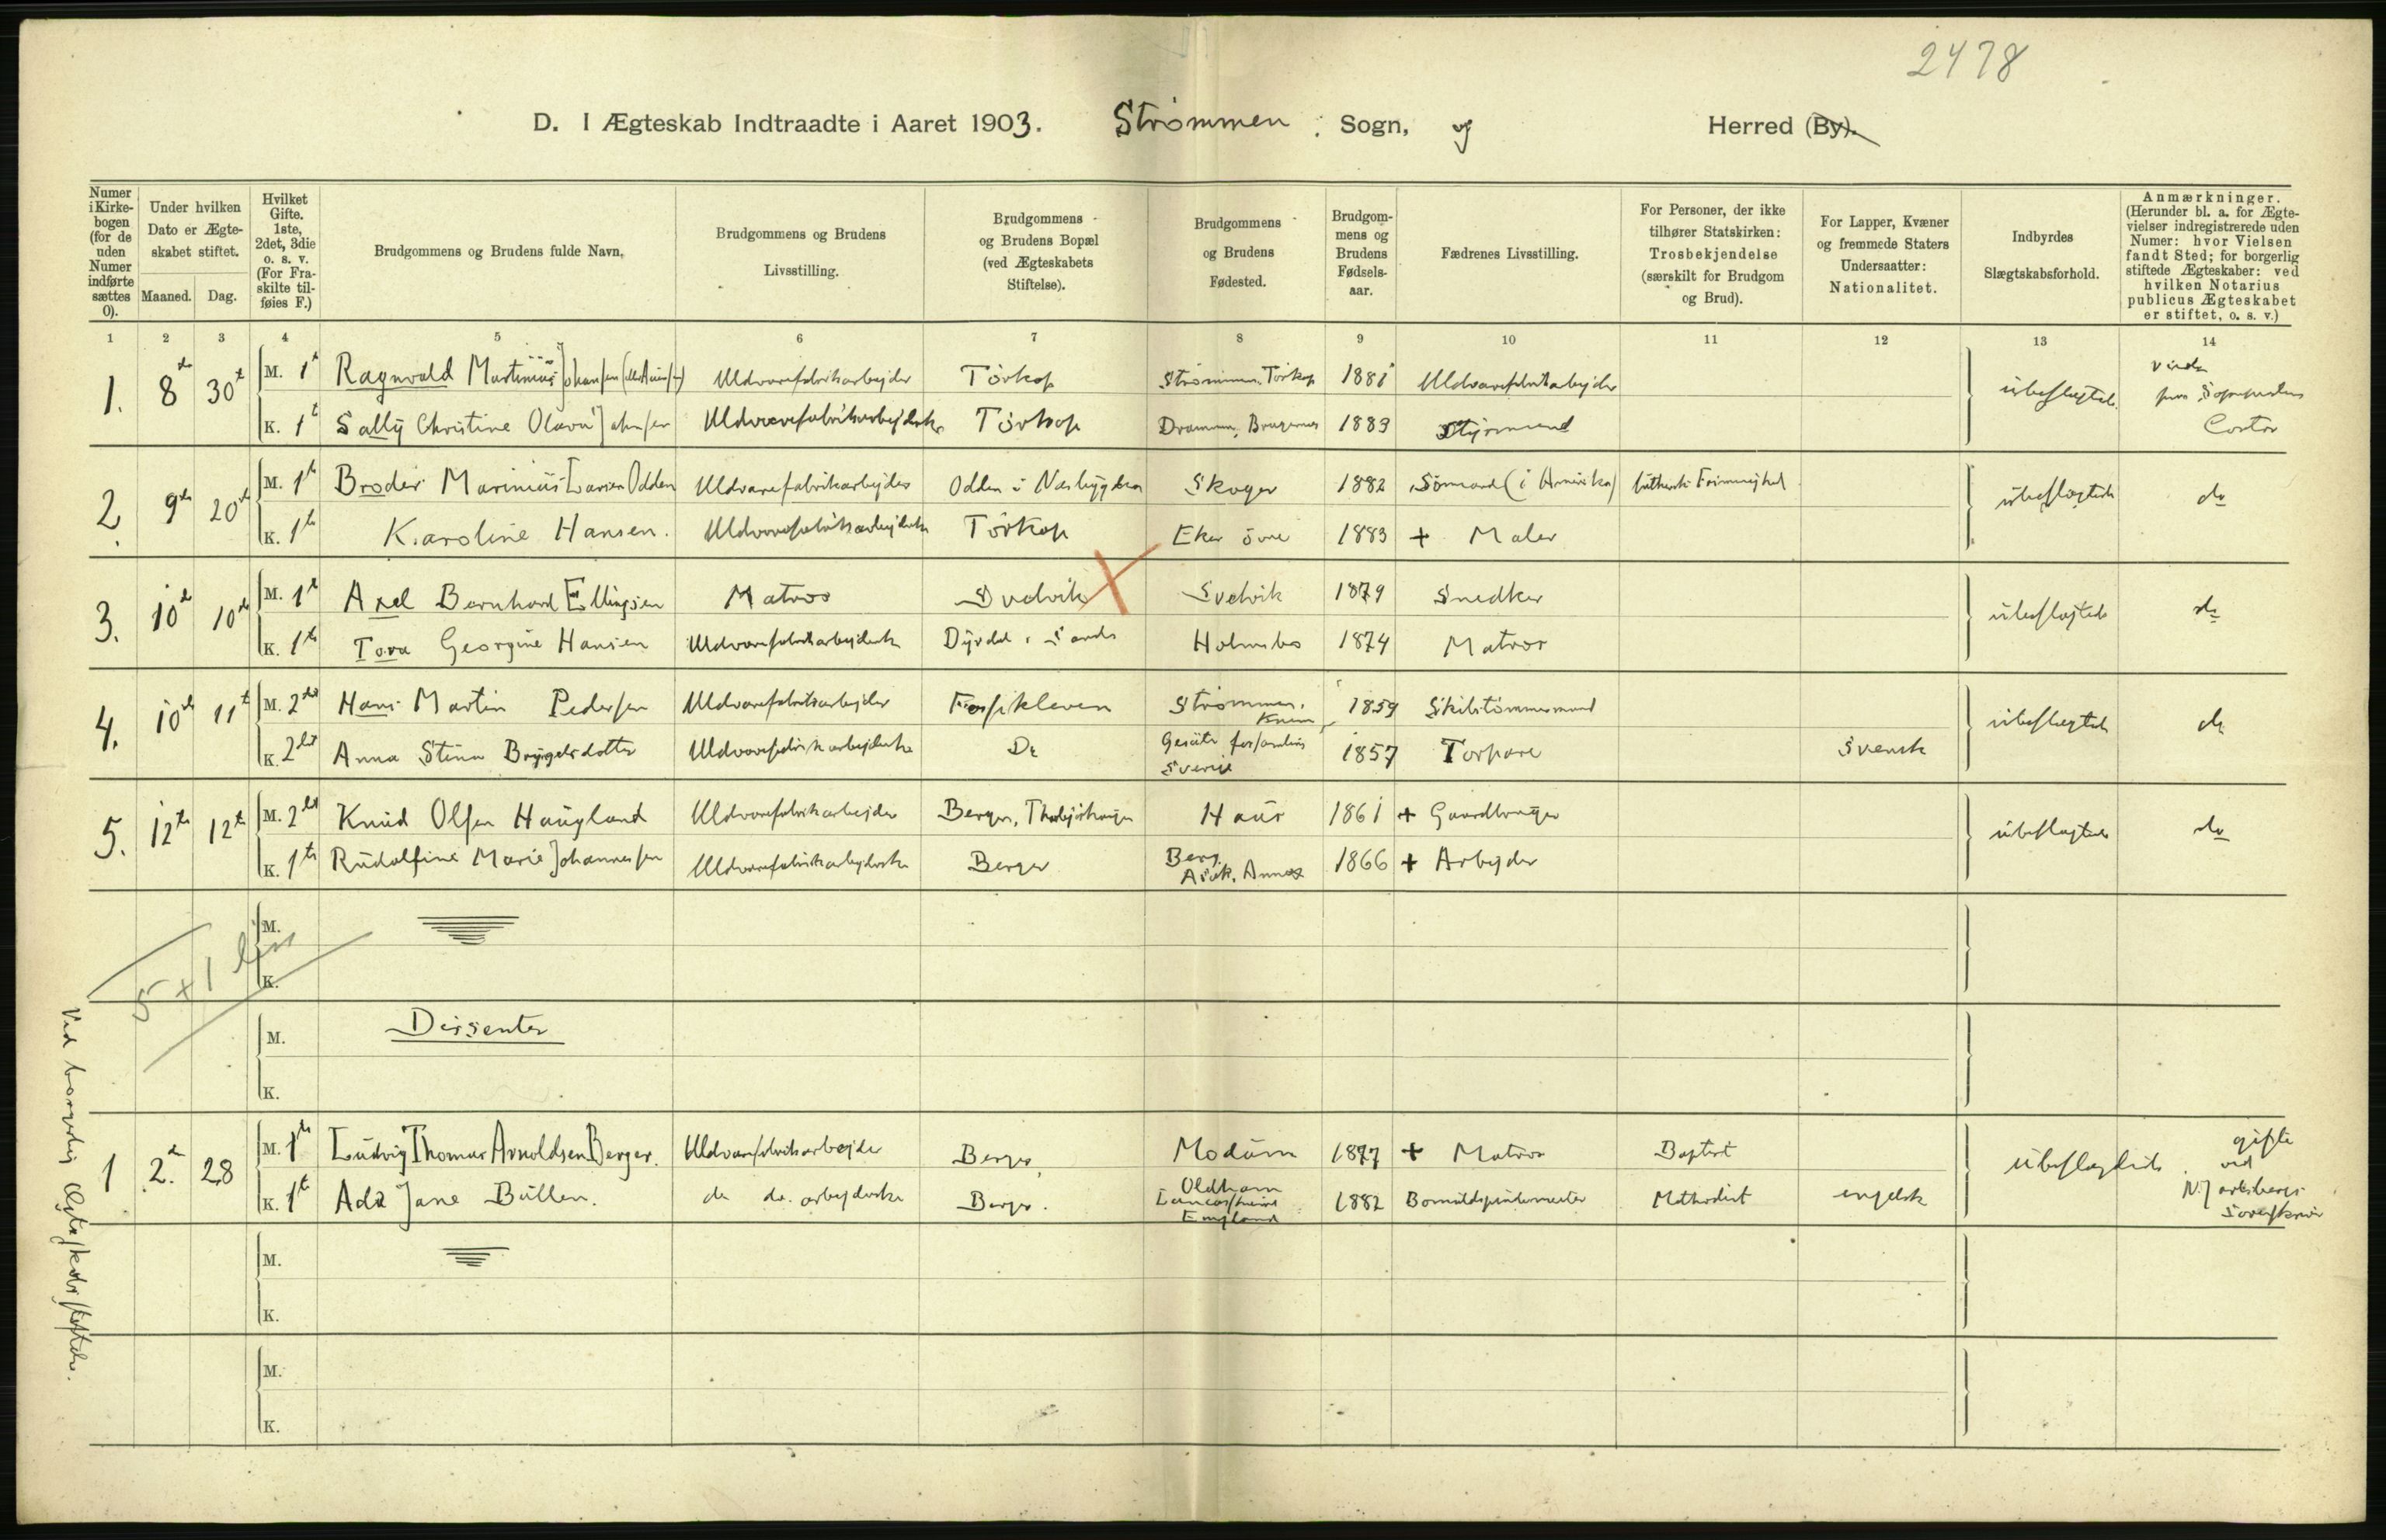 2478
D. I Ægteskab Indtraadte i Aaret 1903. Strömmen Sogn, og Herred (By).
Numer i Kirkebogen (for de uden Numer indførte sættes 0).
Under hvilken Dato er Ægteskabet stiftet.
Maaned. Dag.
Hvilket Gifte. 1ste, 2det, 3die o. s. v. (For Fraskilte tilføies F.)
Brudgommens og Brudens fulde Navn.
Brudgommens og Brudens Livsstilling.
Brudgommens og Brudens Bopæl (ved Ægteskabets Stiftelse).
Brudgommens og Brudens Fødested.
Brudgommens og Brudens Fødselsaar.
Fædrenes Livsstilling.
For Personer, der ikke tilhører Statskirken: Trosbekjendelse (særskilt for Brudgom og Brud).
For Lapper, Kvæner og fremmede Staters Undersaatter: Nationalitet.
Indbyrdes Slægtskabsforhold.
Anmærkninger. (Herunder bl. a. for Ægtevielser indregistrerede uden Numer: hvor Vielsen fandt Sted; for borgerlig stiftede Ægteskaber: ved hvilken Notarius publicus Ægteskabet er stiftet, o. s. v.)
1 2 3 4 5 6 7 8 9 10 11 12 13 14
1. 8de 30te M. 1te Ragnvald Martinius Johansen Uldvarefabrikarbejder Törkop Strömmen, Törkop 1881 Uldvarefabrikarbejder ubeslægtede
K. 1te Sally Christine Olava Johnsen Uldvarefabrikarbejderske Törkop Drammen, Bragernes 1883 Styrmand
2. 9de 20de M. 1te Broder Marinius Larsen Odden Uldvarefabrikarbejder Odden i Nesbygden Skoger 1882 Sömand (i Amerika) luthersk Frimenighed ubeslægtede do
K. 1te Karoline Hansen. Uldvarefabrikarbejderske Törkop Eker övre 1883 + Maler
3. 10de 10de M. 1te Axel Bernhard Ellingsen Matros Svelvik Svelvik 1879 Snedker ubeslægtede do
K. 1te Tora Georgine Hansen Uldvarefabrikarbejderske Dyrdal i Sande Holmsbo 1874 Matros
4. 10de 11te M. 2det Hans Martin Pedersen Uldvarefabrikarbejder Fossekleven Strömmen, 1859 Skibstömmermand ubeslægtede do
K. 2det Anna Stina Uldvarefabrikarbejderske Do Sverige 1857 Torpare Svensk
5. 12te 12te M. 2det Knud Olsen Haugland Uldvarefabrikarbejder Berger, Haus 1861 + Gaardbruger ubeslægtede do
K. 1te Rudolfine Marie Johannesen Uldvarefabrikarbejderske Berger Berg, Asak, Annex 1866 + Arbejder
M.
K.
5 + 1
M. Dissenter
K.
Ved borgerlig Ægteskabsstiftelse.
1 2. 28 M. 1te Ludvig Thomas Arnoldsen Berger. Uldvarefabrikarbejder Berger, Modum 1877 + Matros Baptist ubeslægtede gifte ved N. Jarlsbergs Sorenskriver
K. 1te Ada Jane Bullen. do do. arbejderske Berger. Oldham Lancashire England 1882 Bomuldspindemester Methodist engelsk
M.
K.
M.
K.